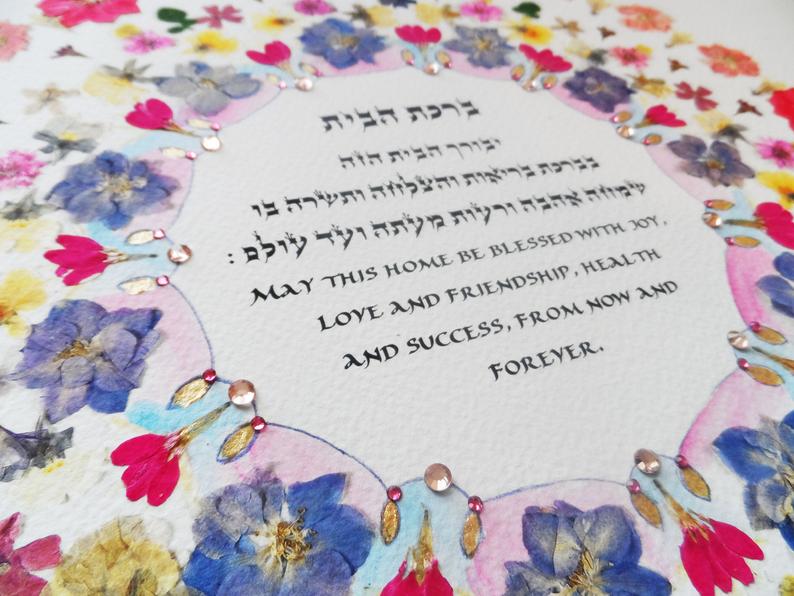 ברכת הבית
יבורך הבית הזה
בברכת בריאות והצלחה ותשרה בו
שמחה אהבה ורעות מעתה ועד עולם:
MAY THIS HOME BE BLESSED WITH JOY,
LOVE AND FRIENDSHIP, HEALTH
AND SUCCESS, FROM NOW AND
FOREVER.